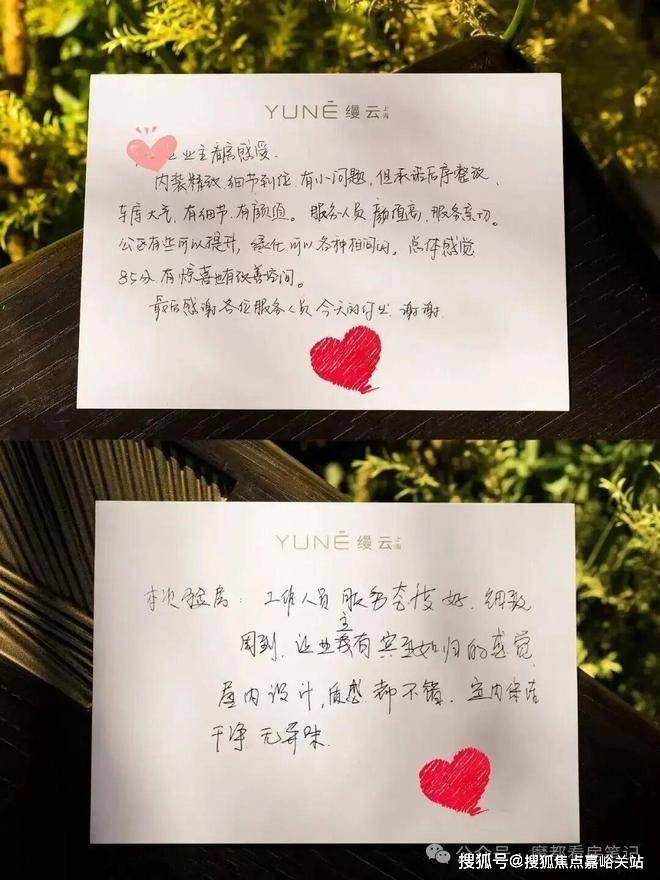 YUNĒ 缦云 上海
业主看房感受.
内装精致.细节到位.有小问题,但承诺后序整改、
车库大气.有细节.有颜值。服务人员颜值高,服务亲切。
公区有些可以提升,绿化可以各种相间内,总体感觉
85分有惊喜也有改善空间。
最后感谢各位服务人员今天的付出 谢谢
YUNĒ 缦云 上海
本次验房: 工作人员服务态度好.细致
周到.让业主有宾至如归的感觉
屋内设计,质感都不错.室内保洁
干净无异味.
公众号·魔都看房笔记
搜狐号@搜狐焦点嘉峪关站